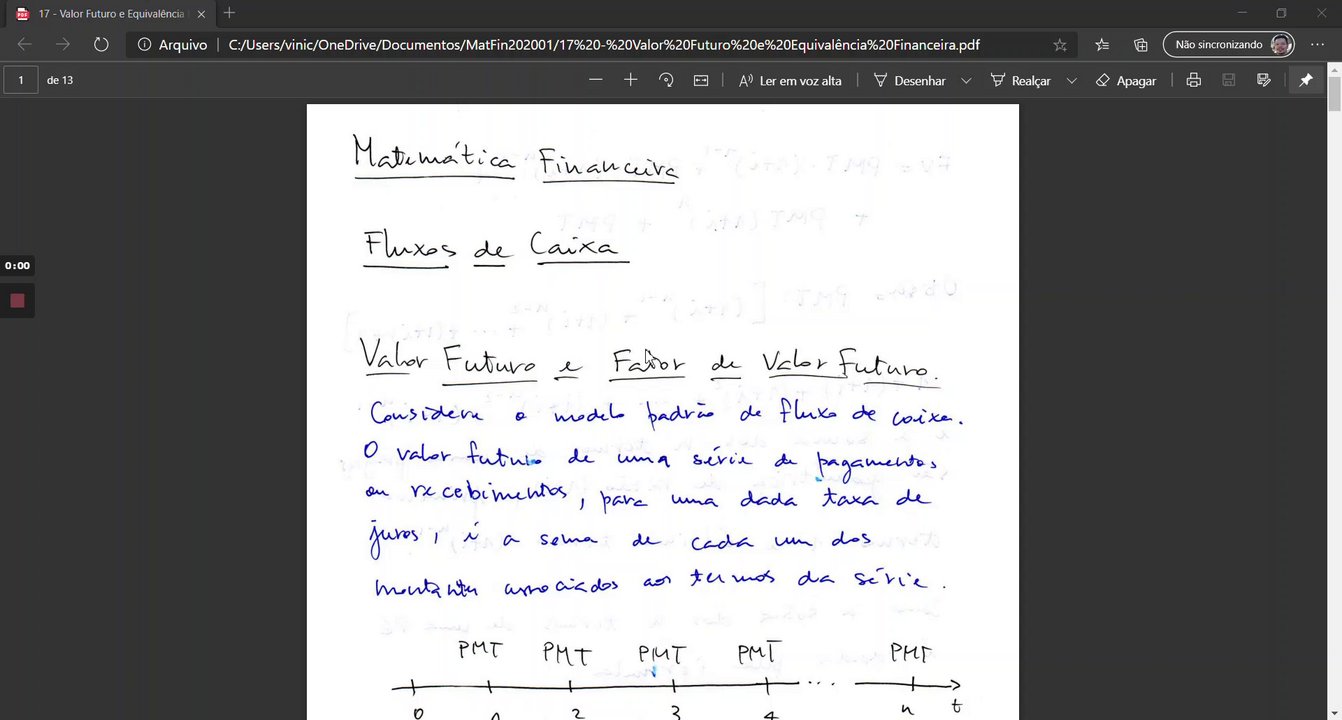 17 - Valor Futuro e Equivalência
Arquivo C:/Users/vinic/OneDrive/Documentos/MatFin202001/17%20-%20Valor%20Futuro%20e%20Equivalência%20Financeira.pdf
Não sincronizando
1 de 13
Ler em voz alta
Desenhar
Realçar
Apagar
0:00
Matemática Financeira
Fluxos de Caixa
Valor Futuro e Fator de Valor Futuro.
Considere o modelo padrão de fluxo de caixa.
O valor futuro de uma série de pagamentos
ou recebimentos, para uma dada taxa de
juros, é a soma de cada um dos
montantes associados aos termos da série.
PMT PMT PMT PMT PMT
0 1 2 3 4 ... n t